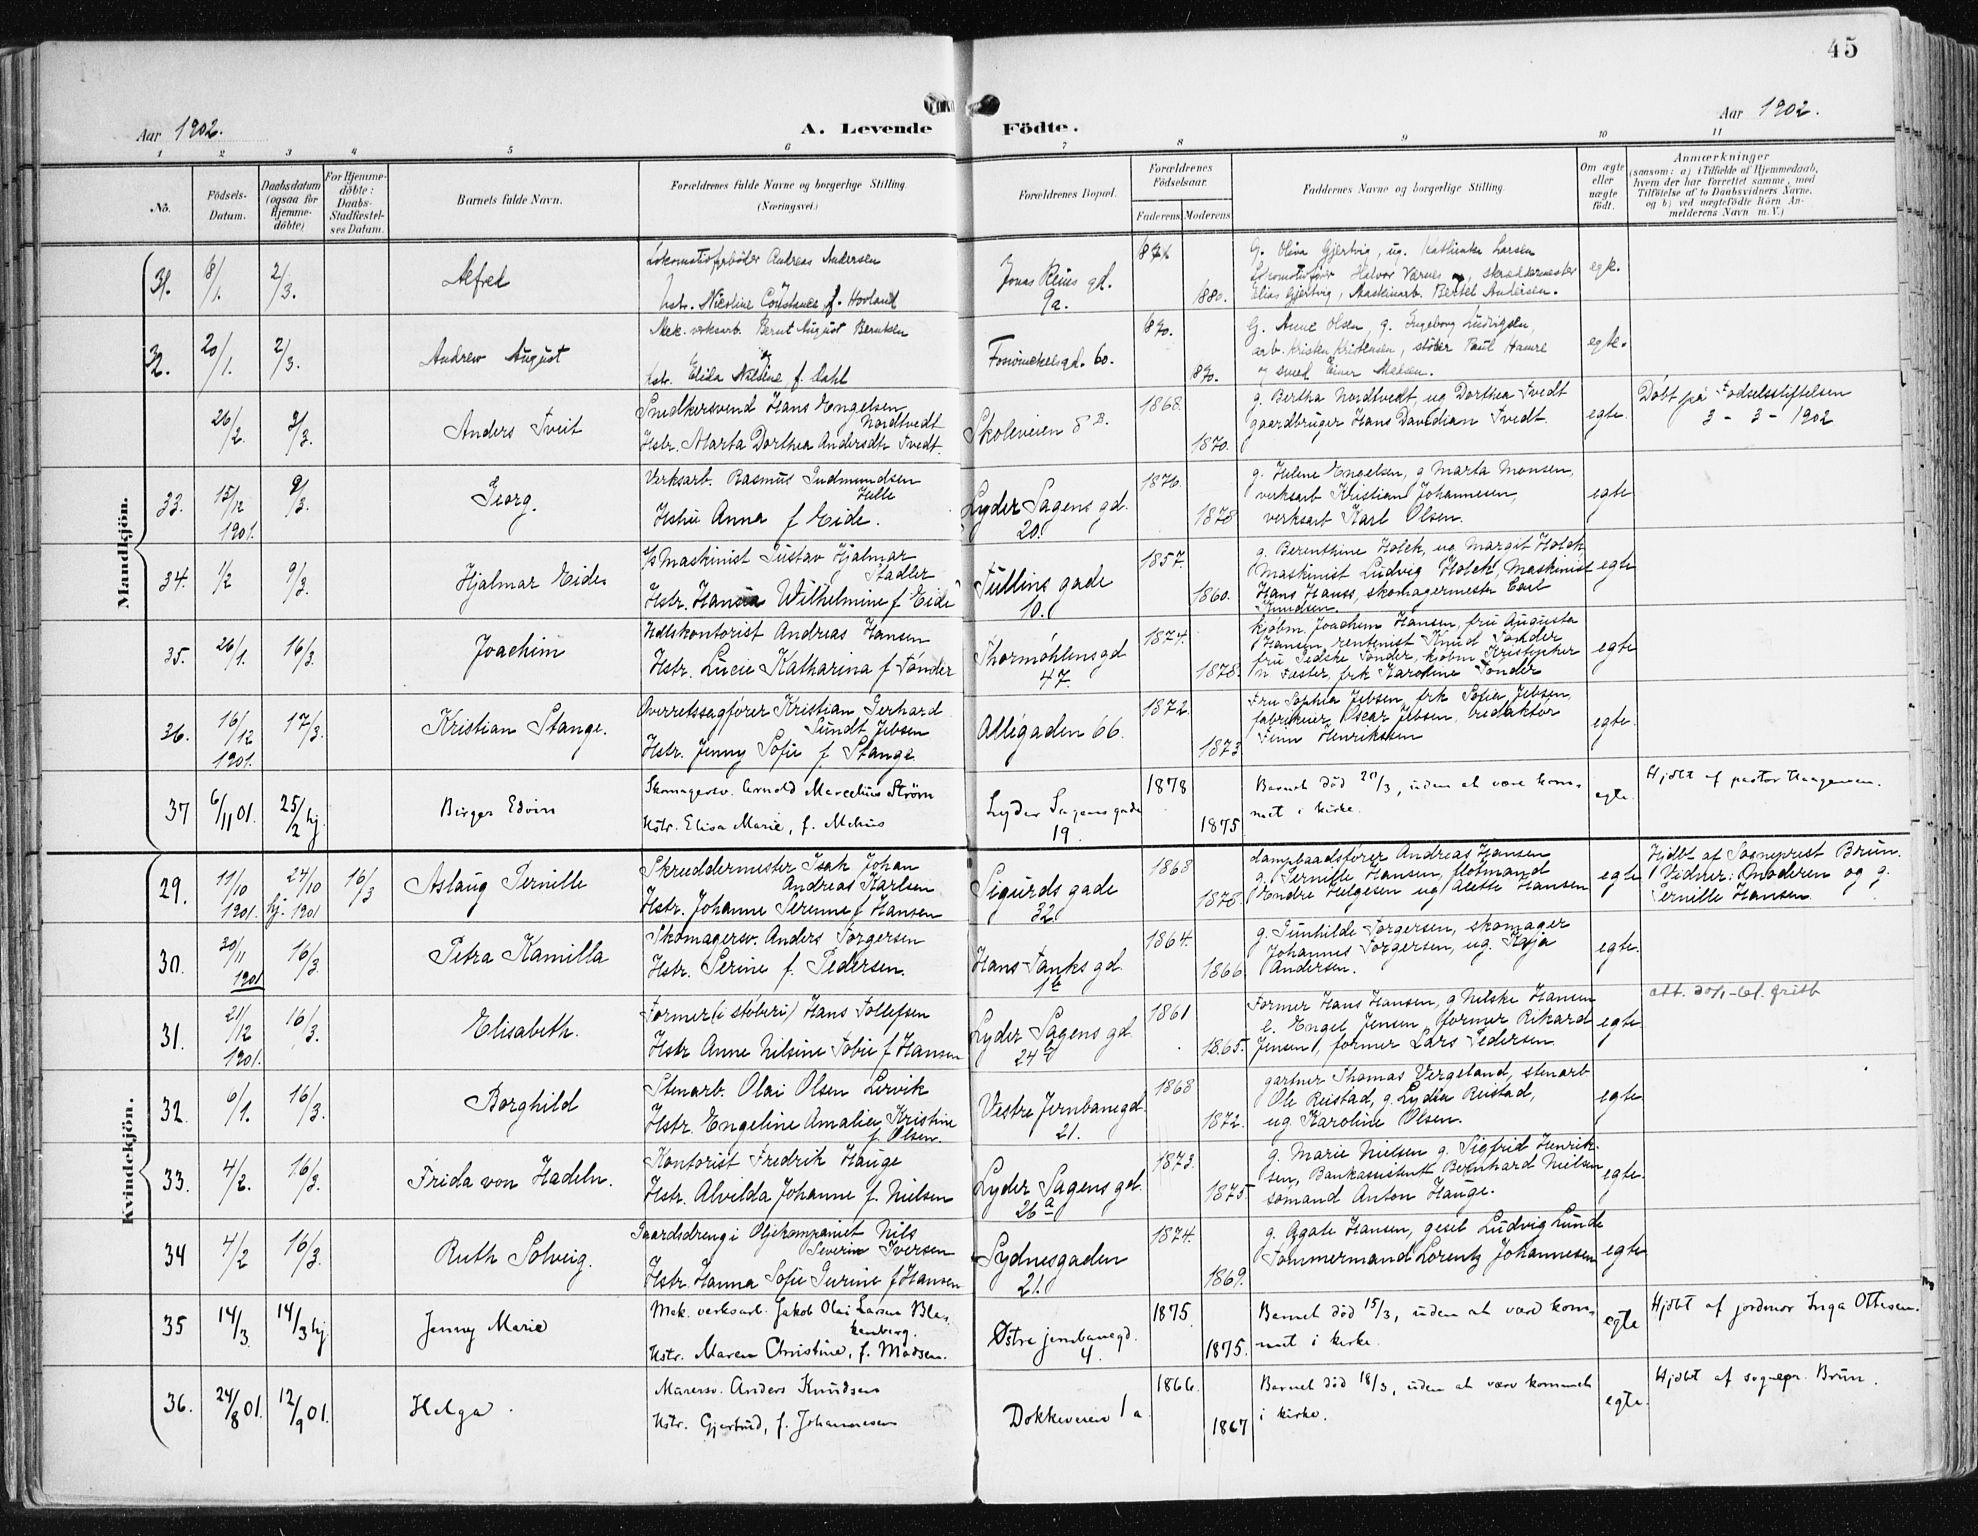 45
Aar 1902.
A. Levende Födte.
Aar 1902.
1 2 3 4 5 6 7 8 9 10 11
No.
Födsels-Datum.
Daabsdatum (ogsaa for Hjemme-döbte)
For Hjemme-döbte: Daabs-Stadfæstel-ses Datum.
Barnets fulde Navn.
Forældrenes fulde Navne og borgerlige Stilling. (Næringsvei.)
Forældrenes Bopæl.
Forældrenes Födselsaar.
Faderens Moderens
Faddernes Navne og borgerlige Stilling.
Om ægte eller uægte födt.
Anmærkninger
(saasom: a) i Tilfælde af Hjemmedaab, hvem der har forrettet samme, med Tilföielse af to Daabsvidners Navne, og b) ved uægtefödte Börn Anmelderens Navn m. V.)
Mandkjön.
31. 8/1. 2/3. Alfred
Lokomotivfyrböder Andreas Andersen
hstr. Nicoline Constance f. Hovland
Jonas Reins gd. 9a.
880.
G. Oliva Gjertvig, ug. Kathinka Larsen
Lokomotivförer Halvor Værnes og skræddermester
Elias Gjertvig, Maskinarb. Bertel Andersen.
egte.
32. 20/1. 2/3. Andrew August
Mek. verksarb. Bernt August Berntsen
hstr. Elida Nilsine f. Dahl
60.
870.
870.
G. Anne Olsen, g. Ingeborg Ludvigsen,
arb. Kristen Kristensen, stöber Paul Hamre
og smed Einar Nielsen.
egte.
26/2. 3/3. Anders Tveit
Snedkersvend Hans Engelsen Nordtvedt
Hstr. Marta Dorthea Andersdtr Tvedt.
Skoleveien 8 B.
1868.
1870.
g. Bertha Nordtvedt ug Dorthea Tvedt
gaardbruger Hans Davidian Tvedt.
egte.
Döbt på Födselsstiftelsen
3 - 3 - 1902
33. 15/12 1901. 9/3. Georg.
Verksarb. Rasmus Gudmundsen Helle
Hstru Anna f Eide.
Lyder Sagens gd. 20.
1876.
1878
g. Helene Engelsen, g Marta Monsen,
verksarb Kristian Johannesen,
verksarb Karl Olsen.
egte
34. 1/2 9/3. Hjalmar Eide
Maskinist Gustav Hjalmar Stadler
Hstr. Hansia Wilhelmine f Eide
Tullins gade 10.
1857.
1860.
g. Berenthine Holck, ug Margit Holck
Maskinist Ludvig Holck, Maskinist
Hans Hauss, skomagermester Carl
Knudsen.
egte
35. 26/1. 16/3. Joachim
Kontorist Andreas Hansen
Hstr. Lucie Katharina f Tönder
Thormöhlensgd 47.
1874.
1878.
kjöbm. Joachim Hansen, fru Augusta
Hansen, rentenist Knud Tönder
fru Gidske Tönder, kjöbm Kristopher
frk Karoline Tönder
egte
36. 16/12 1901. 17/3. Kristian Stange.
Overretssagförer Kristian Gerhard
Sundt Jebsen
Hstr. Jenny Sofie f Stange
Allégaden 66.
1872.
1873.
Fru Sophia Jebsen, frk Sofie Jebsen,
fabrikeier Oscar Jebsen, redaktör
Finn Henriksen
egte.
37 6/11 01. 25/2 hj. Birger Edvin
Skomagersv. Arnold Marcelius Ström
Hstr. Elisa Marie, f. Mehus
Lyder Sagens gade 19.
1878
1875
Barnet död 20/3, uden at være kom-
met i kirke.
egte.
Hjdbt af pastor Haagensen.
Kvindekjön.
29. 11/10 1901. 24/10 hj. 1901 16/3 Aslaug Pernille
Skræddermester Isak Johan
Andreas Karlsen
Hstr. Johanne Serenne f Hansen
Sigurds gade 32.
1868
1878.
dampbaadsförer Andreas Hansen
g. Pernille Hansen, flotmand
Endre Helgesen ug Alette Hansen
egte
Hjdbt af Sogneprest Brun.
Vidner: Moderen og g.
Pernille Hansen
30. 30/11 1901 16/3. Petra Kamilla
Skomagersv. Anders Torgersen
Hstr. Serine f. Pedersen.
Hans Tanks gd.
1864.
1866.
g. Gunhilde Torgersen, skomager
Johannes Torgersen, ug. Kaja
Andersen.
egte.
31. 21/12 1901. 16/3. Elisabeth.
Former (i stöberi) Hans Tollefsen
Hstr Anne Nilsine Tobie f Hansen
Lyder Sagens gd 24
1861
1865.
Former Hans Hansen, g Nilske Hansen
e. Engel Jensen, former Rikard
Jensen, former Lars Pedersen
egte
32. 6/1. 16/3. Borghild
Stenarb. Olai Olsen Lervik
Hstr. Engeline Amalie Kristine
f. Olsen.
Vestre Jernbanegd. 21.
1868
1872.
gartner Thomas Vergeland, stenarb
Ole Reistad, g. Lydia Reistad,
ug Karoline Olsen.
egte
33. 4/2. 16/3. Frida von Hadeln.
Kontorist Fredrik Hauge
Hstr. Alvilda Johanne f. Nielsen
Lyder Sagens gd. 26 a
1873.
1875.
g. Marie Nielsen g. Sigfrid Henrik-
sen, Bankassistent Bernhard Nielsen
sömand Anton Hauge.
egte.
34 4/2 16/3. Ruth Solveig.
Gaardsdreng i Oljekompaniet Nils
Severin Iversen
Hstr. Hanna Sofie Gurine f Hansen
Sydnesgaden 21.
1874.
1869.
g. Agate Hansen, gesel Ludvig Lunde
Tømmermand Lorentz Johannesen
egte
35 14/3. 14/3 hj Jenny Marie
Mek. verksarb. Jakob Olai Larsen Bla-
kenberg.
Hstr. Maren Christine, f. Madsen.
Østre jernbanegd. 4.
1875.
1875.
Barnet död 15/3, uden at være kom-
met i kirke.
egte
Hjdbt af jordmor Inga Ottesen.
36. 24/8 01. 12/9 01. Helga.
Murersv. Anders Knudsen
Hstr. Gjertrud, f. Johannesen
Dokkeveien 1 a.
1866.
1867
Barnet död 18/3, uden at være kommet
i kirke.
egte.
Hjdbt af sognepr. Brun.